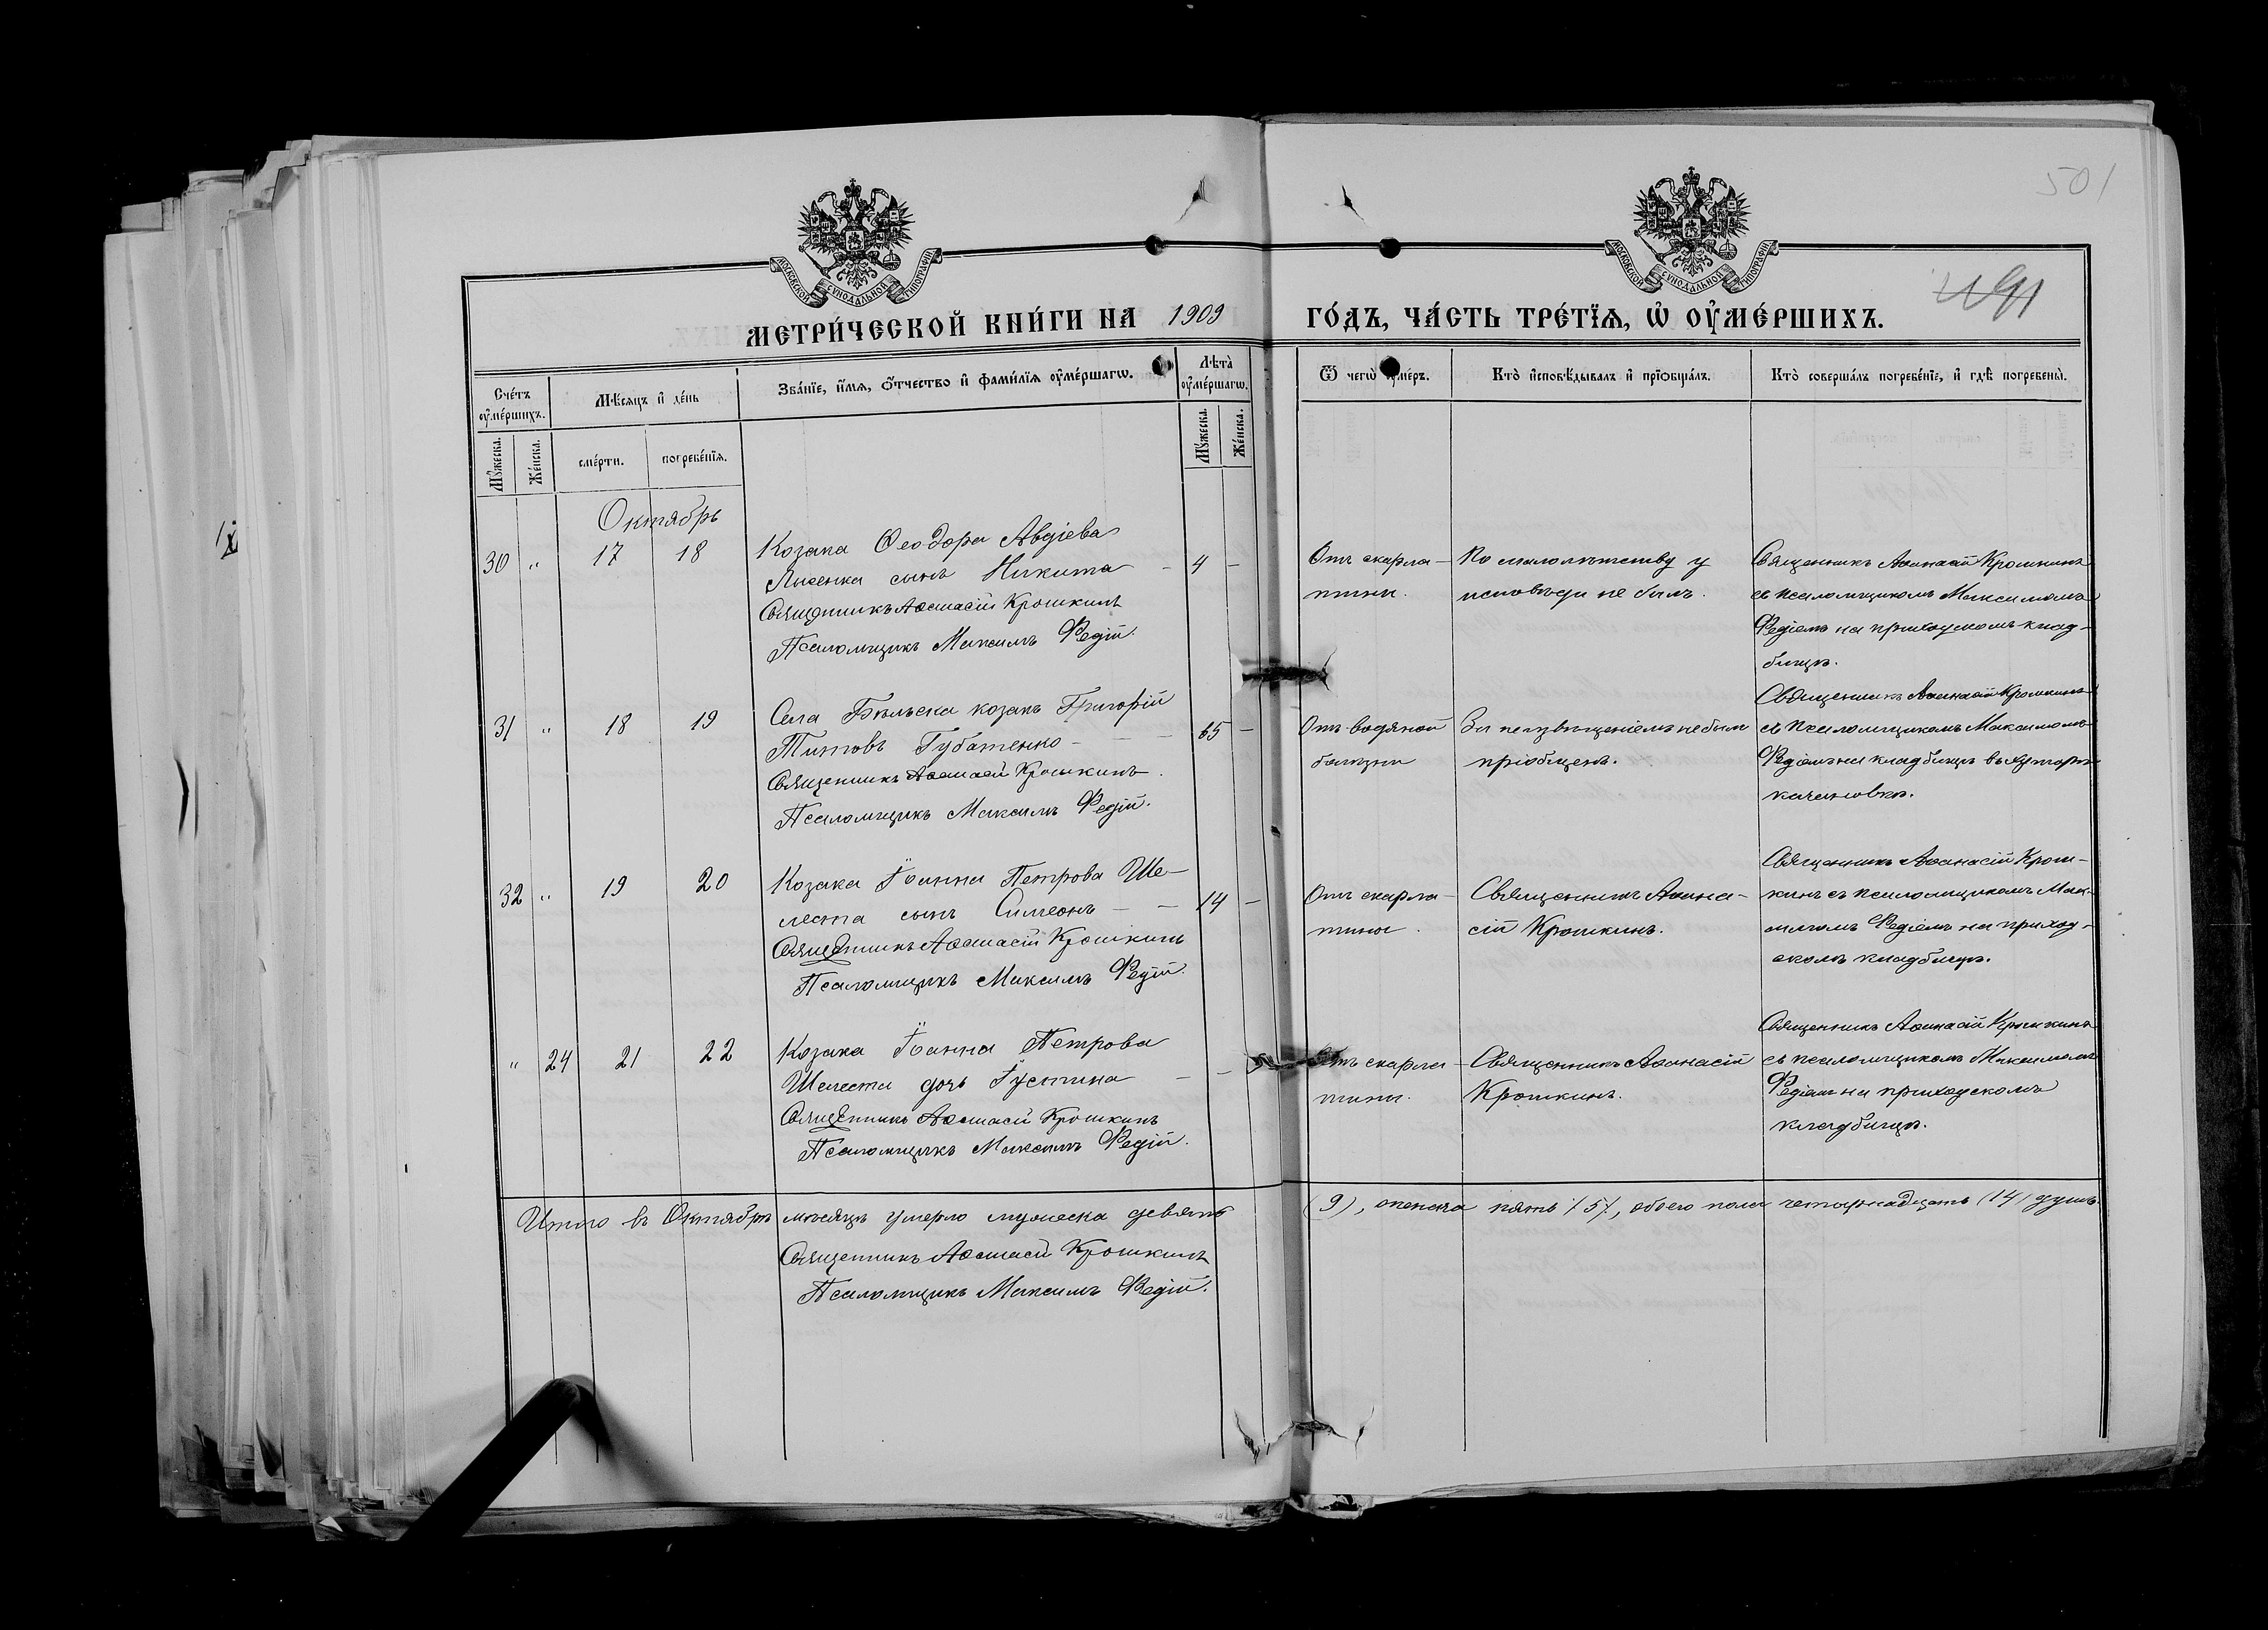 501
МОСКОВСКОЙ СУНОДАЛЬНОЙ ТИПОГРАФІИ
МОСКОВСКОЙ СУНОДАЛЬНОЙ ТИПОГРАФІИ
МЕТРИ́ЧЕСКОЙ КНИ́ГИ НА 1909 ГО́ДЪ, ЧА́СТЬ ТРЕ́ТЇѦ, Ѡ҆ ОУ҆МЕ́РШИХЪ.
Сче́тъ оу҆ме́ршихъ.
Мѣ́сяцъ и҆ де́нь
Зва́нїе, и҆́мѧ, ѻ҆́тчество и҆ фами́лїѧ оу҆ме́ршагѡ.
Лѣ́та оу҆ме́ршагѡ.
Ѿ чегѡ̀ оу҆́меръ.
Кто̀ и҆сповѣ́дывалъ и҆ прїѻбща́лъ.
Кто̀ соверша́лъ погребе́нїе, и҆ гдѣ̀ погребены̀.
Мꙋ́жеска.
Же́нска.
сме́рти.
погребе́нїѧ.
Мꙋ́жеска.
Же́нска.
Октябрь
30 " 17 18
Козака Ѳеодора Авдіева
Лисенка сынъ Никита – 4 –
Священникъ Аѳанасій Крошкинъ
Псаломщикъ Максимъ Федій.
Отъ скарла-
тины.
По малолѣтству у
исповѣди не былъ.
Священникъ Аѳанасій Крошкинъ
съ псаломщикомъ Максимомъ
Федіемъ на приходскомъ клад-
бищѣ.
31 " 18 19
Села Бѣльска козакъ Григорій
Титовъ Губатенко – – – 65 –
Священникъ Аѳанасій Крошкинъ.
Псаломщикъ Максимъ Федій.
Отъ водяной
болѣзни
За неизвѣщеніемъ не былъ
пріобщенъ.
Священникъ Аѳанасій Крошкинъ
съ псаломщикомъ Максимомъ
Федіемъ на кладбищѣ въ хуторѣ
Качановкѣ.
32 " 19 20
Козака Іоанна Петрова Ше-
леста сынъ Симеонъ – – 14 –
Священникъ Аѳанасій Крошкинъ
Псаломщикъ Максимъ Федій.
Отъ скарла-
тины.
Священникъ Аѳана-
сій Крошкинъ.
Священникъ Аѳанасій Крош-
кинъ съ псаломщикомъ Мак-
симомъ Федіемъ на приход-
скомъ кладбищѣ.
" 24 21 22
Козака Іоанна Петрова
Шелеста дочь Іустина – –
Священникъ Аѳанасій Крошкинъ
Псаломщикъ Максимъ Федій.
Отъ скарла-
тины.
Священникъ Аѳанасій
Крошкинъ.
Священникъ Аѳанасій Крошкинъ
съ псаломщикомъ Максимомъ
Федіемъ на приходскомъ
кладбищѣ.
Итого въ Октябрѣ мѣсяцѣ умерло мужеска девять (9), женска пять (5), обоего пола четырнадцать (14) душъ.
Священникъ Аѳанасій Крошкинъ
Псаломщикъ Максимъ Федій.